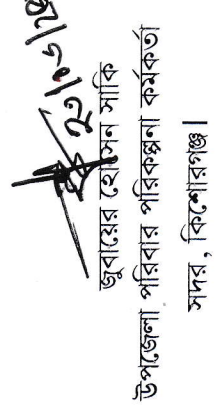 জুবায়ের হোসেন সাকি
উপজেলা পরিবার পরিকল্পনা কর্মকর্তা
সদর, কিশোরগঞ্জ।